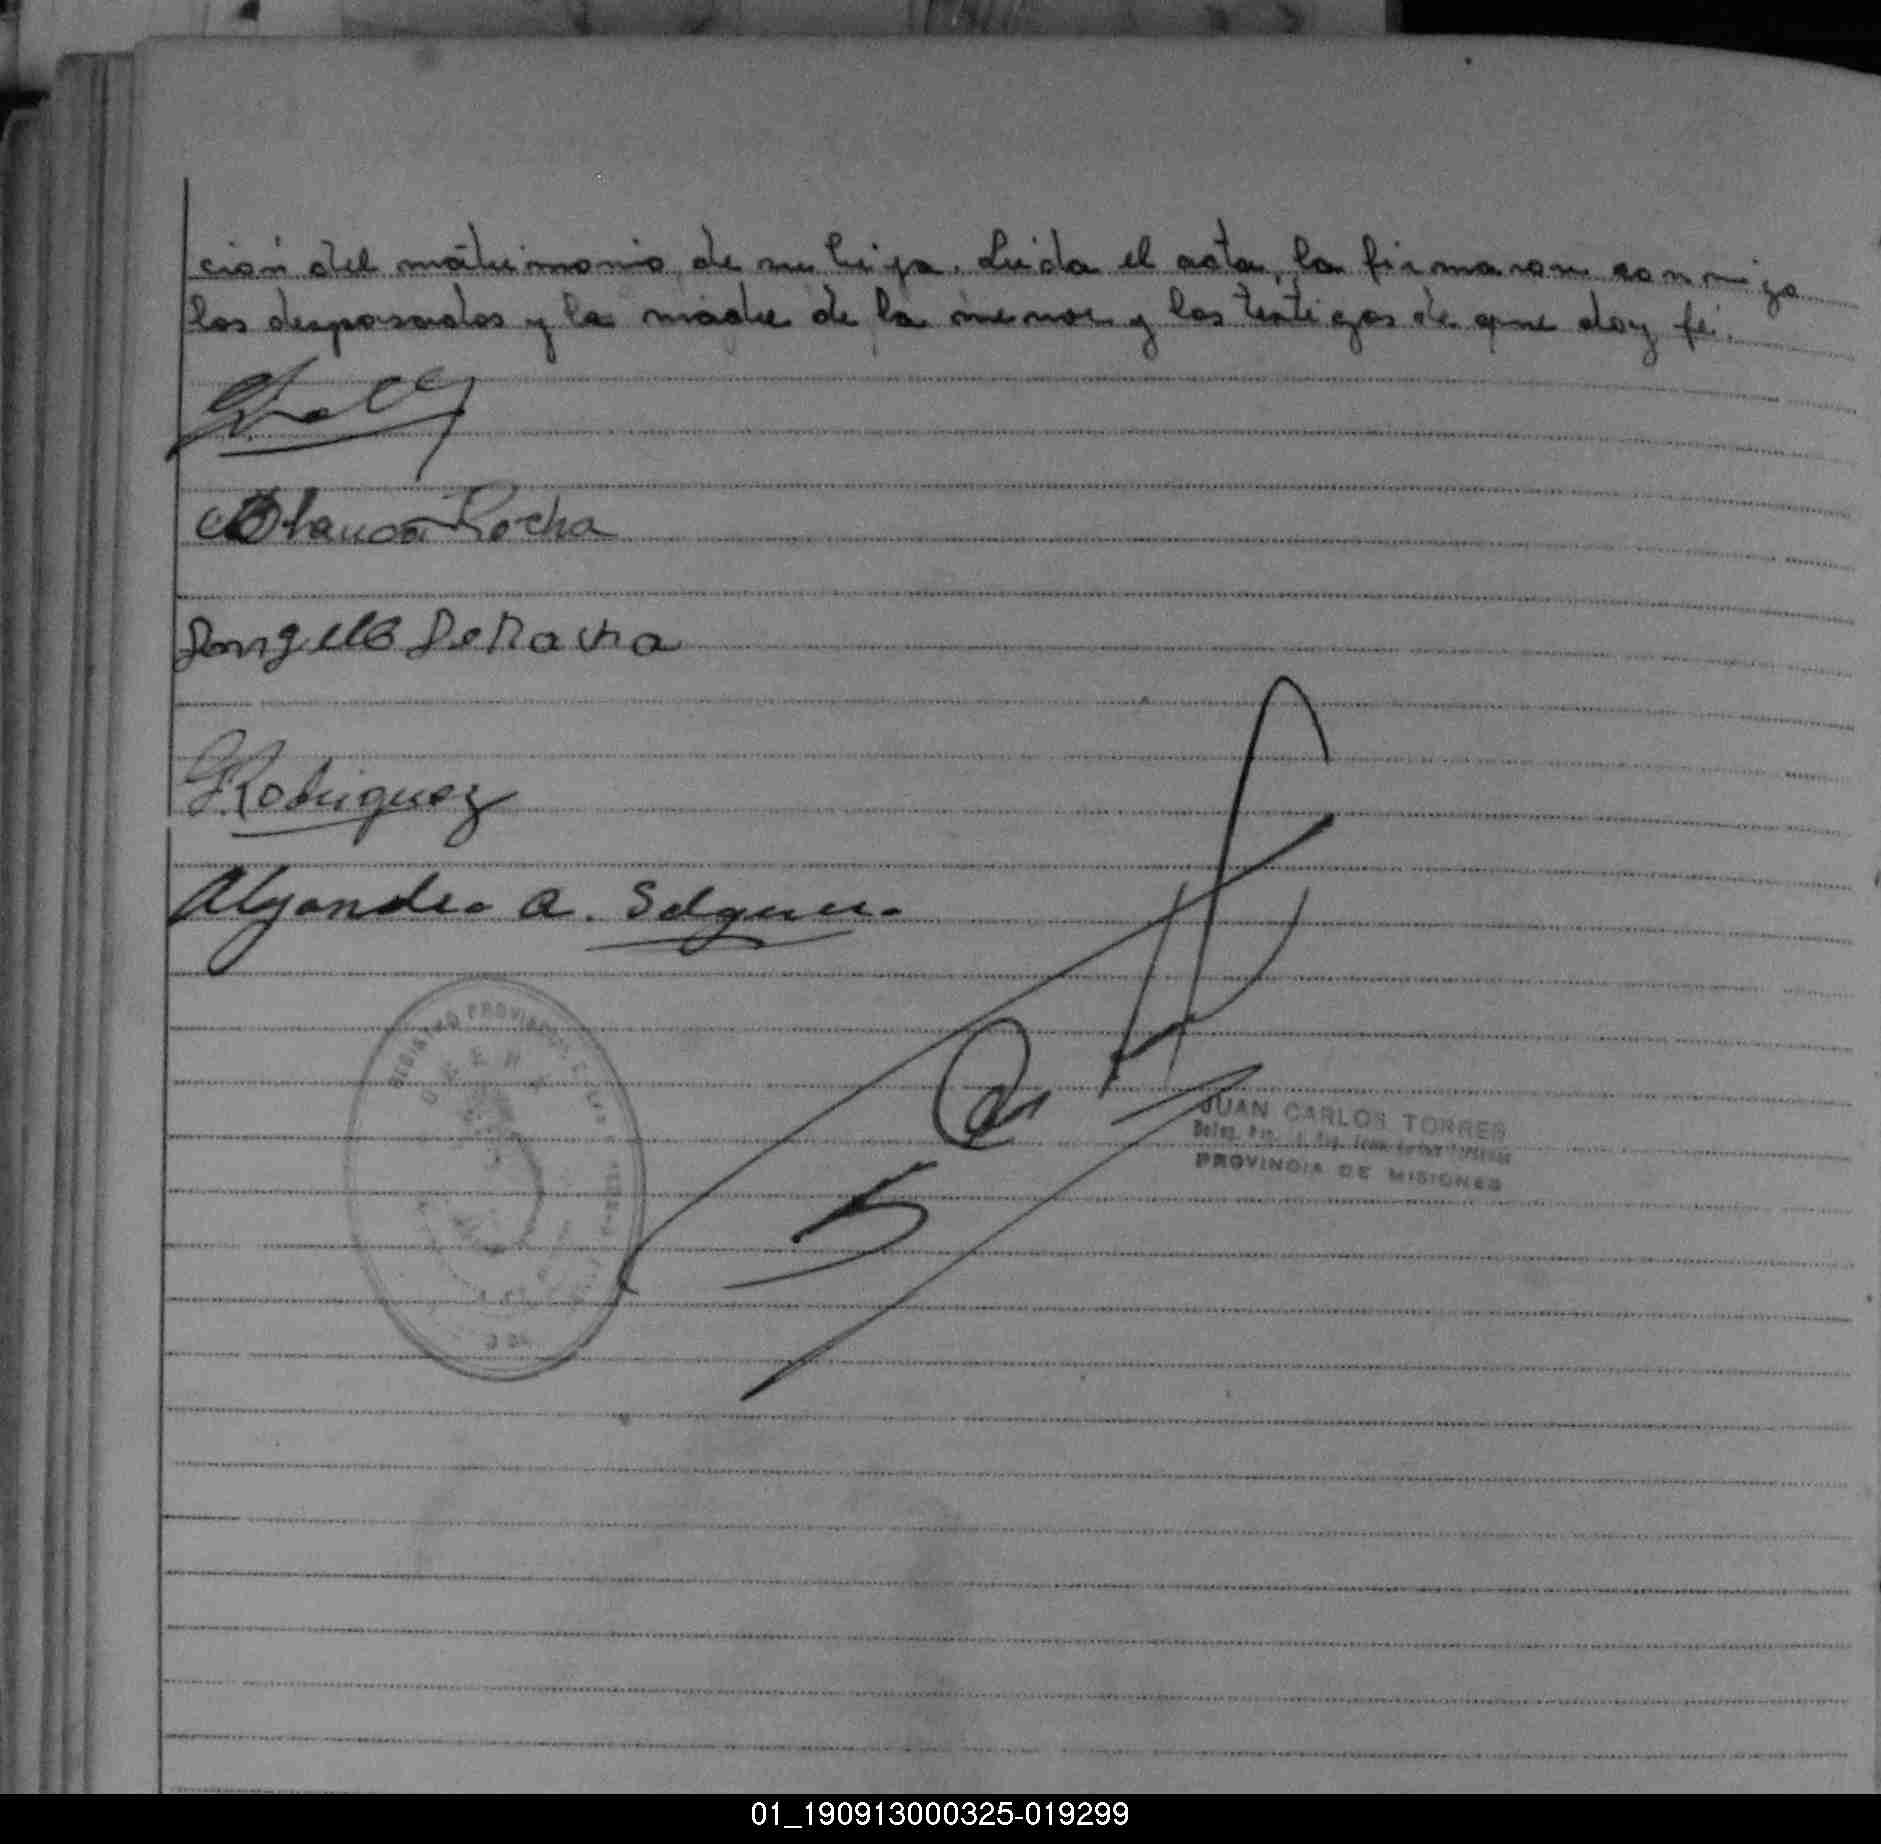 ción del matrimonio de su hija. Leida el acta, la firmaron conmigo
los desposados y la madre de la menor y los testigos de que doy fé.
Blanca Rocha
de Rocha
G Rodriguez
Alejandro A. Selguero
REGISTRO PROVINCIAL DE LAS
OBERA
JUAN CARLOS TORRES
PROVINCIA DE MISIONES
01_190913000325-019299